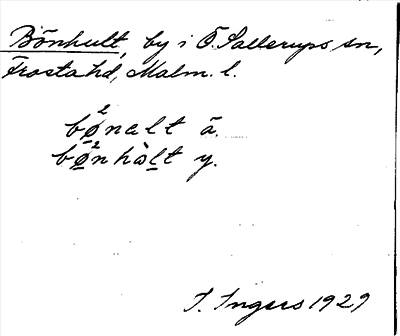 Bönhult, by i Ö. Sallerups sn,
Frosta hd, Malm. l.
bø²nalt ä.
bø²nhàlt y.
I. Ingers 1929